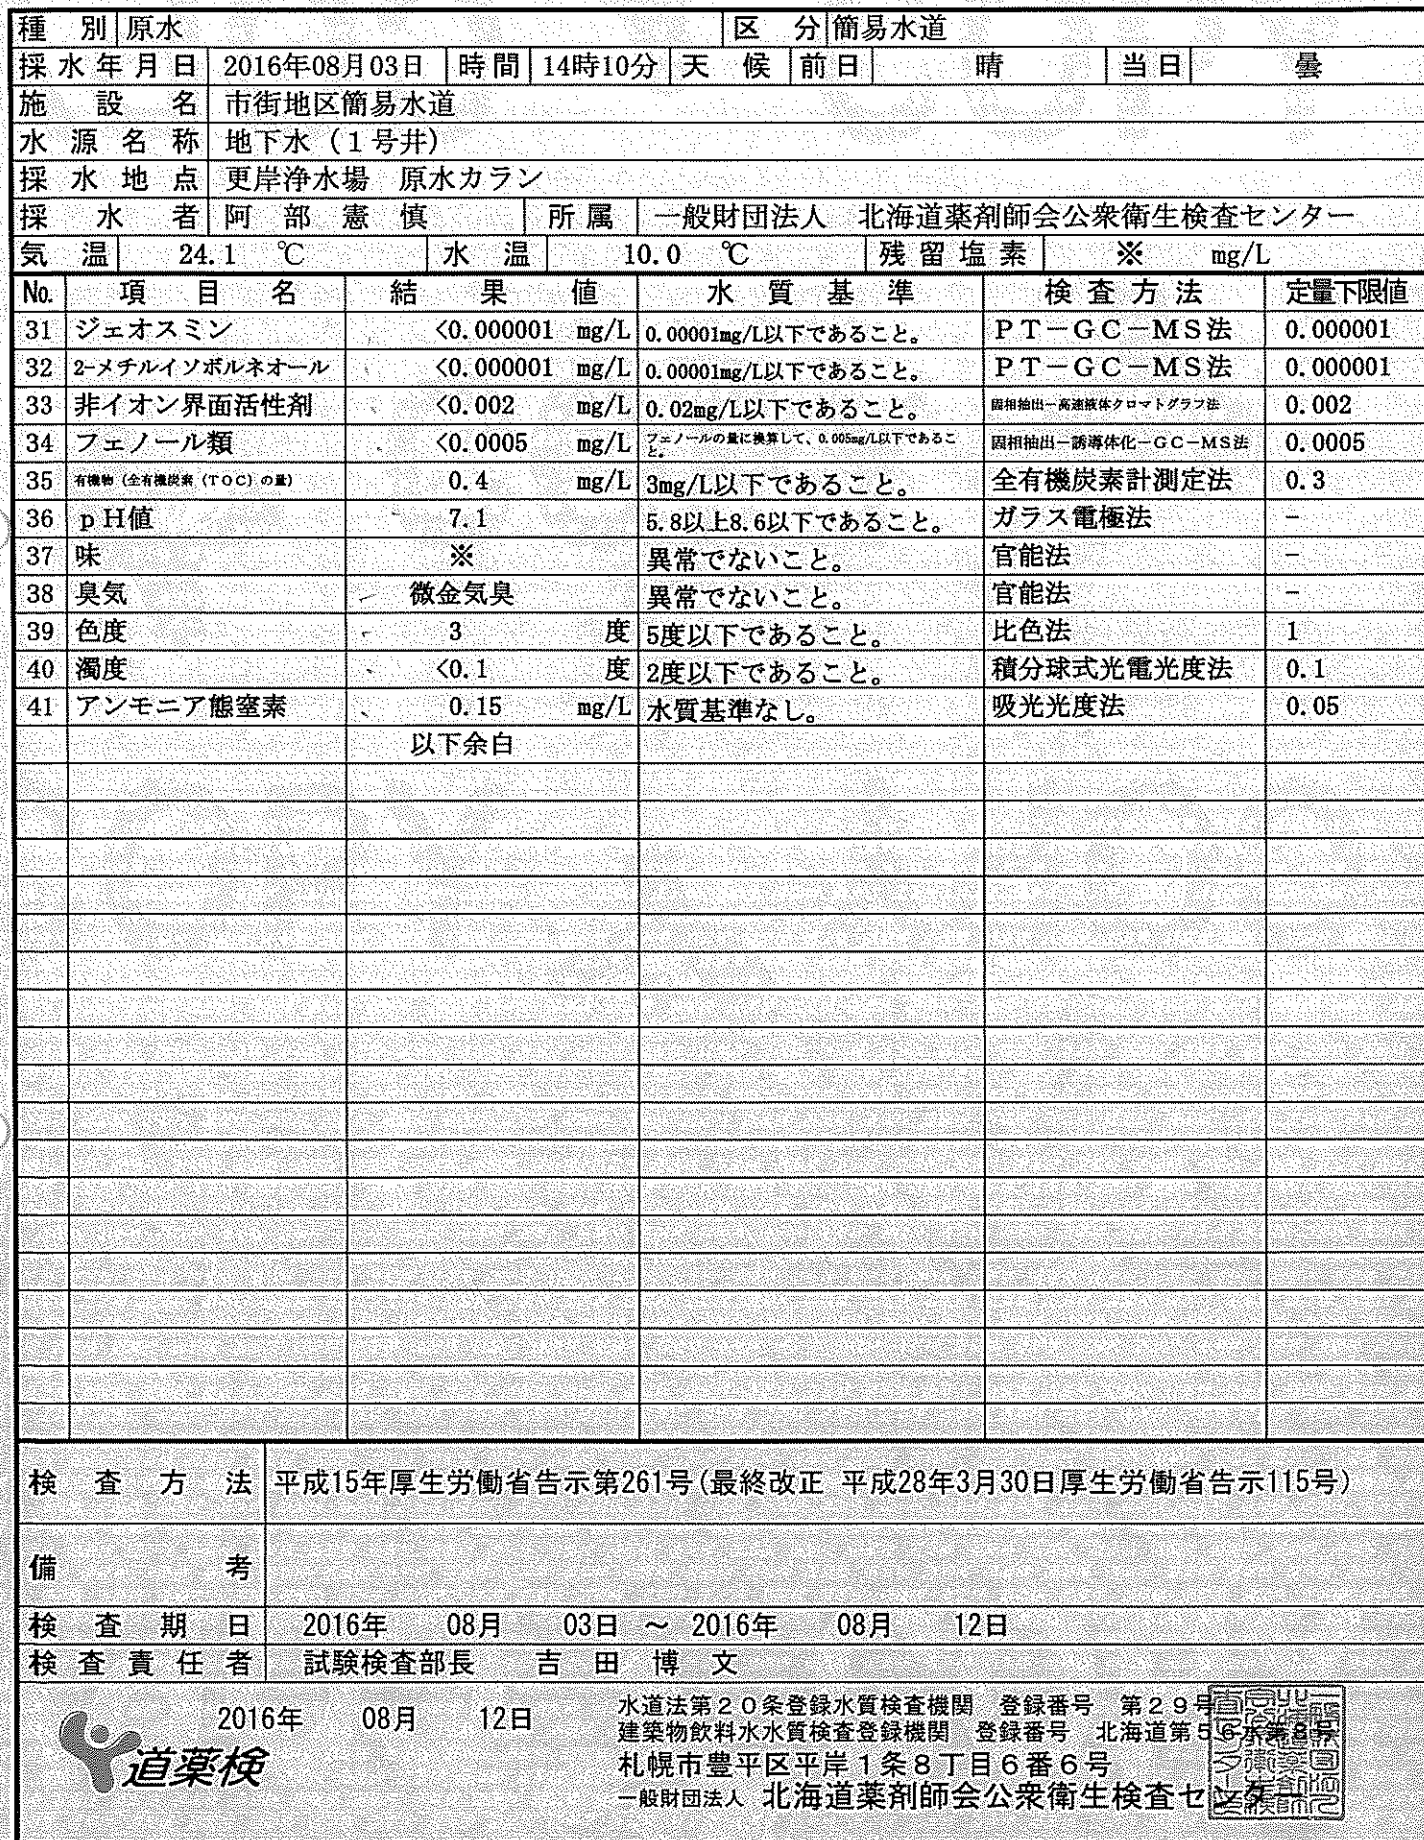 種別 原水 区分 簡易水道
採水年月日 2016年08月03日 時間 14時10分 天候 前日 晴 当日 曇
施設名 市街地区簡易水道
水源名称 地下水（1号井）
採水地点 更岸浄水場 原水カラン
採水者 阿部憲慎 所属 一般財団法人 北海道薬剤師会公衆衛生検査センター
気温 24.1 ℃ 水温 10.0 ℃ 残留塩素 ※ mg/L
No. 項目名 結果値 水質基準 検査方法 定量下限値
31 ジェオスミン <0.000001 mg/L 0.00001mg/L以下であること。 PT－GC－MS法 0.000001
32 2-メチルイソボルネオール <0.000001 mg/L 0.00001mg/L以下であること。 PT－GC－MS法 0.000001
33 非イオン界面活性剤 <0.002 mg/L 0.02mg/L以下であること。 固相抽出－高速液体クロマトグラフ法 0.002
34 フェノール類 <0.0005 mg/L フェノールの量に換算して、0.005mg/L以下であること。 固相抽出－誘導体化－GC－MS法 0.0005
35 有機物（全有機炭素（TOC）の量） 0.4 mg/L 3mg/L以下であること。 全有機炭素計測定法 0.3
36 pH値 7.1 5.8以上8.6以下であること。 ガラス電極法 −
37 味 ※ 異常でないこと。 官能法 −
38 臭気 微金気臭 異常でないこと。 官能法 −
39 色度 3 度 5度以下であること。 比色法 1
40 濁度 <0.1 度 2度以下であること。 積分球式光電光度法 0.1
41 アンモニア態窒素 0.15 mg/L 水質基準なし。 吸光光度法 0.05
以下余白
検査方法 平成15年厚生労働省告示第261号(最終改正 平成28年3月30日厚生労働省告示115号)
備考
検査期日 2016年 08月 03日 ～ 2016年 08月 12日
検査責任者 試験検査部長 吉田博文
2016年 08月 12日
道薬検
水道法第２０条登録水質検査機関 登録番号 第２９号
建築物飲料水水質検査登録機関 登録番号 北海道第５６水第８号
札幌市豊平区平岸１条８丁目６番６号
一般財団法人 北海道薬剤師会公衆衛生検査センター